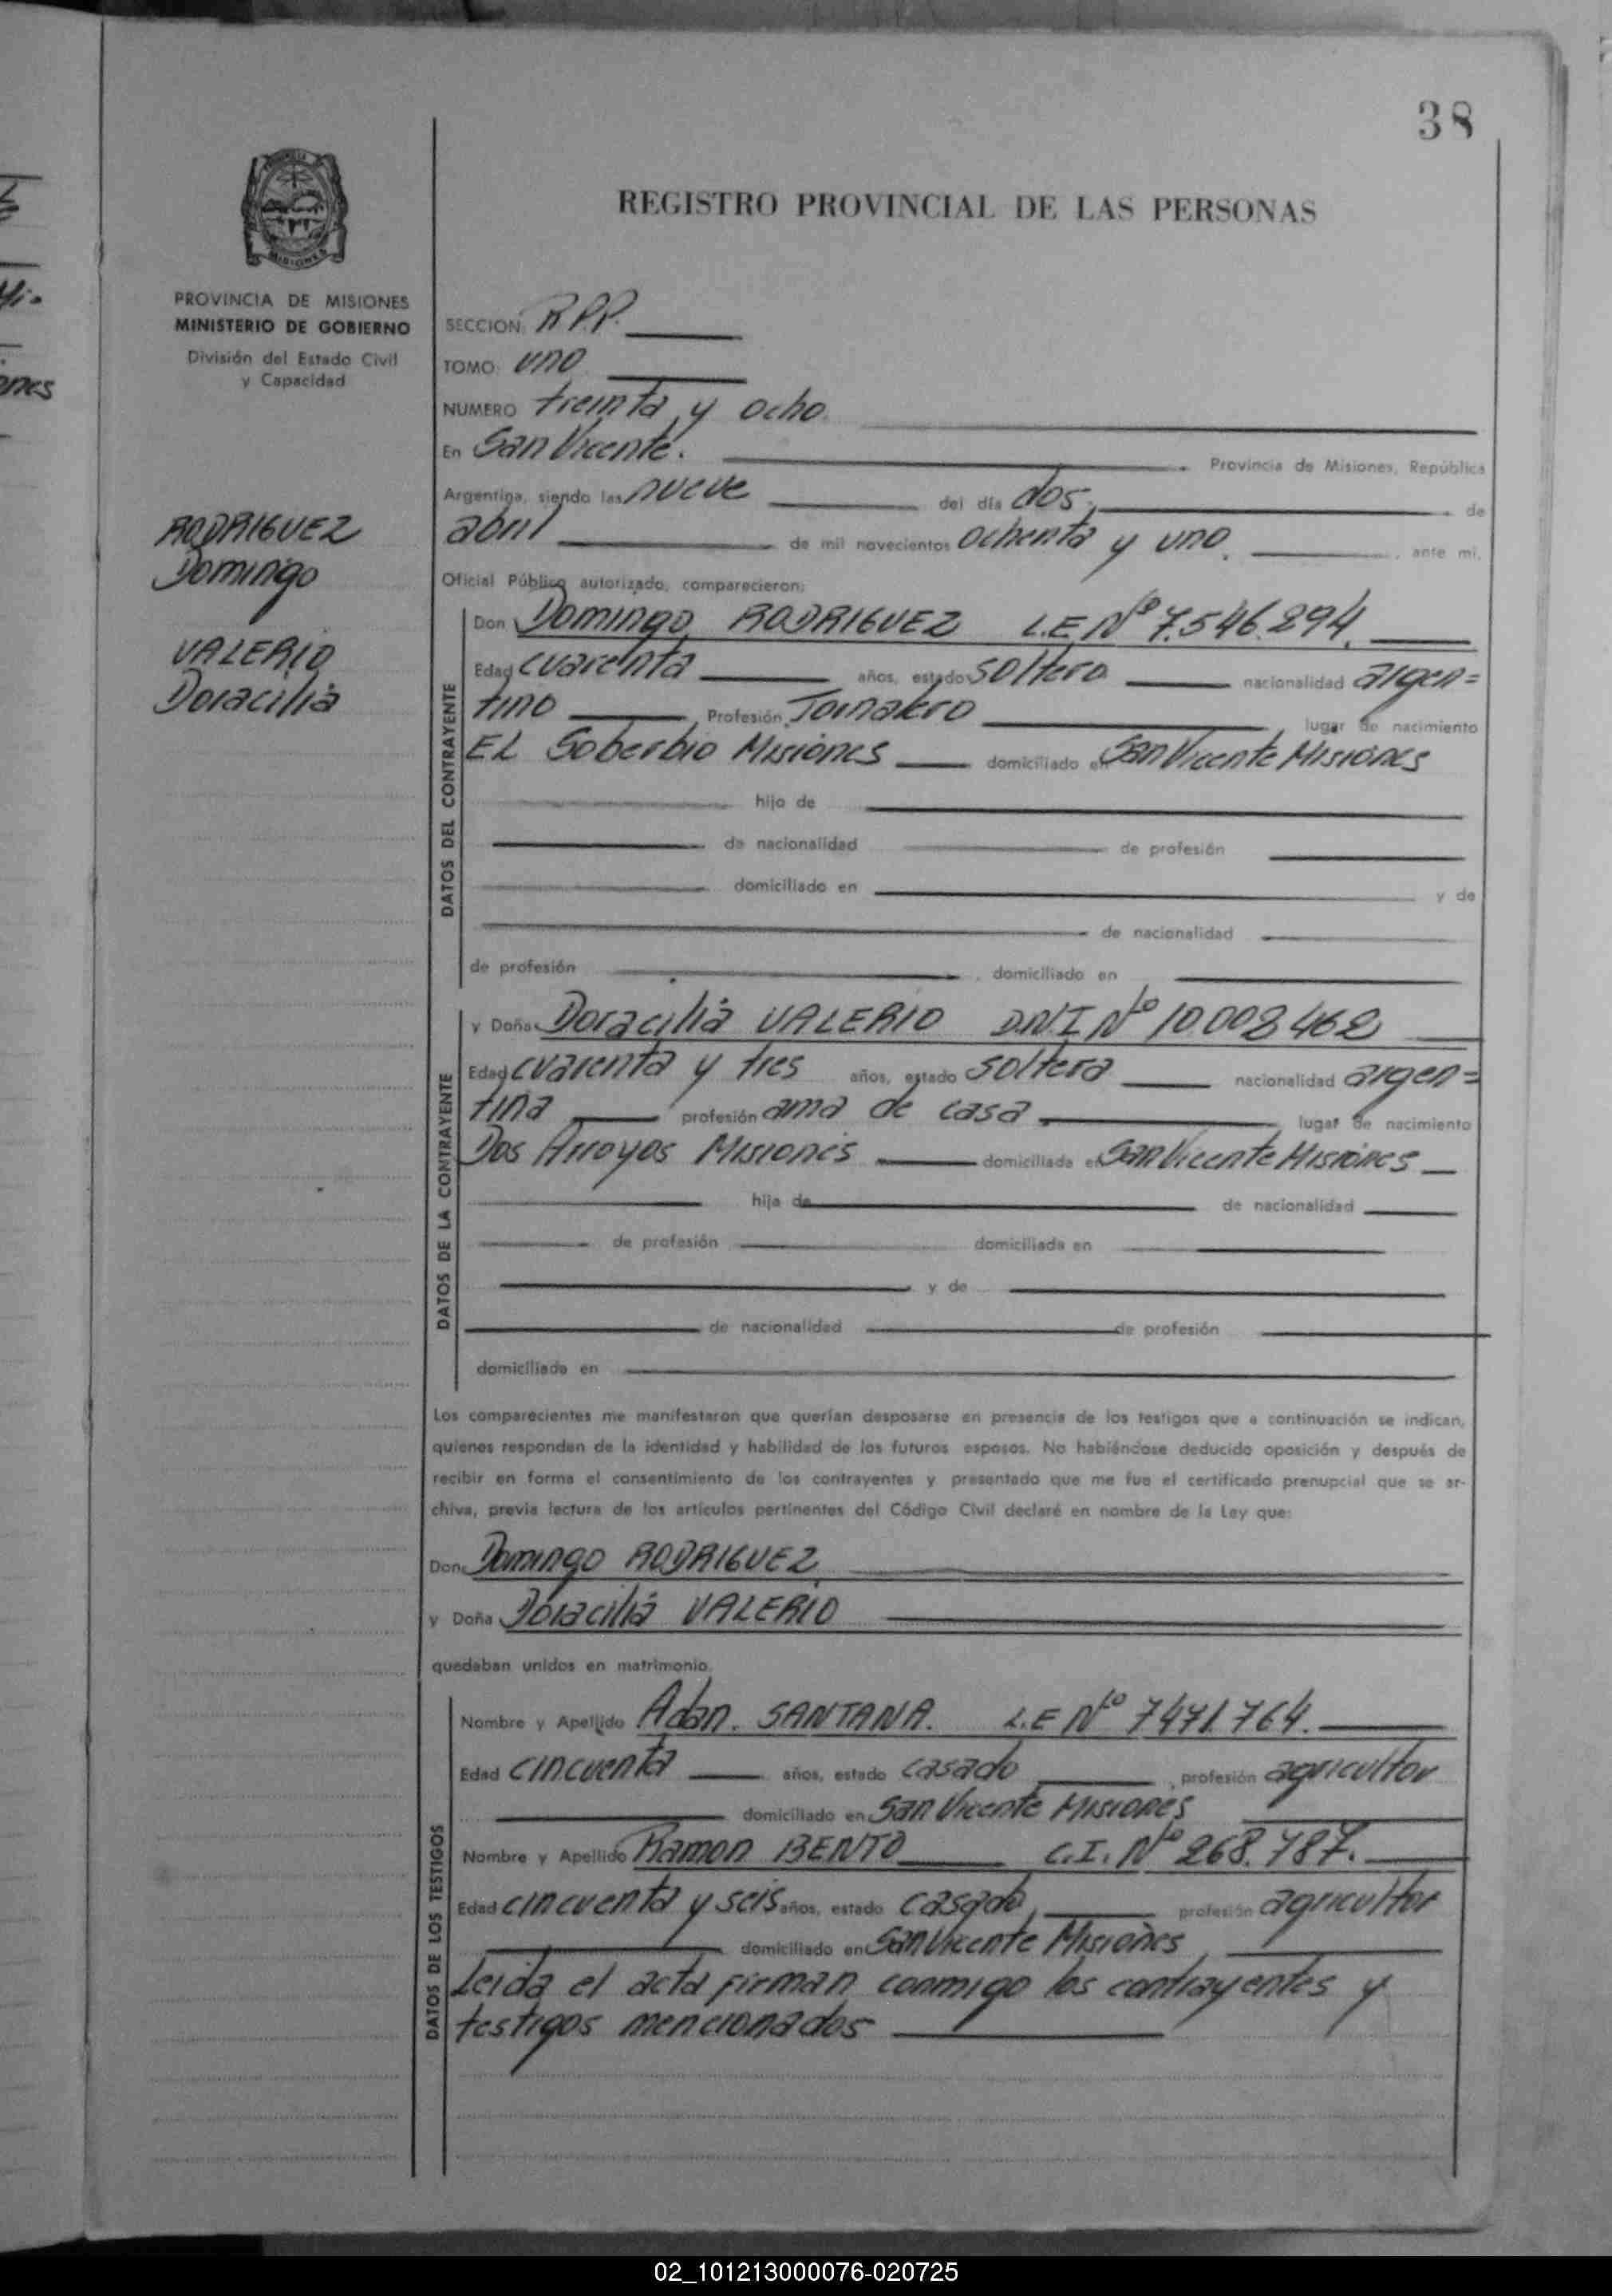 38
REGISTRO PROVINCIAL DE LAS PERSONAS
MISIONES
PROVINCIA DE MISIONES
MINISTERIO DE GOBIERNO
División del Estado Civil
y Capacidad
RODRIGUEZ
Domingo
VALERIO
Doracilia
SECCION: R.P.P.
TOMO: uno
NUMERO treinta y ocho
En San Vicente. Provincia de Misiones, República
Argentina, siendo las nueve del día dos de
abril de mil novecientos ochenta y uno, ante mi,
Oficial Público autorizado, comparecieron:
DATOS DEL CONTRAYENTE
Don Domingo RODRIGUEZ L.E Nº 7.546.894.
Edad cuarenta años, estado soltero nacionalidad argen=
tino Profesión Jornalero lugar de nacimiento
EL Soberbio Misiones domiciliado en San Vicente Misiones
hijo de
de nacionalidad de profesión
domiciliado en y de
de nacionalidad
de profesión domiciliado en
DATOS DE LA CONTRAYENTE
y Doña Doracilia VALERIO D.N.I Nº 10.008.462
Edad cuarenta y tres años, estado soltera nacionalidad argen=
tina profesión ama de casa lugar de nacimiento
Dos Arroyos Misiones domiciliada en San Vicente Misiones
hija de de nacionalidad
de profesión domiciliada en
y de
de nacionalidad de profesión
domiciliada en
Los comparecientes me manifestaron que querían desposarse en presencia de los testigos que a continuación se indican,
quienes responden de la identidad y habilidad de los futuros esposos. No habiéndose deducido oposición y después de
recibir en forma el consentimiento de los contrayentes y presentado que me fue el certificado prenupcial que se ar-
chiva, previa lectura de los artículos pertinentes del Código Civil declaré en nombre de la Ley que:
Don Domingo RODRIGUEZ
y Doña Doracilia VALERIO
quedaban unidos en matrimonio.
DATOS DE LOS TESTIGOS
Nombre y Apellido Adan. SANTANA. L.E Nº 7471.764.
Edad cincuenta años, estado casado, profesión agricultor
domiciliado en San Vicente Misiones
Nombre y Apellido Ramon BENTO C.I. Nº 268.787.
Edad cincuenta y seis años, estado casado, profesión agricultor
domiciliado en San Vicente Misiones,
Leida el acta firman conmigo los contrayentes y
testigos mencionados
02_101213000076-020725